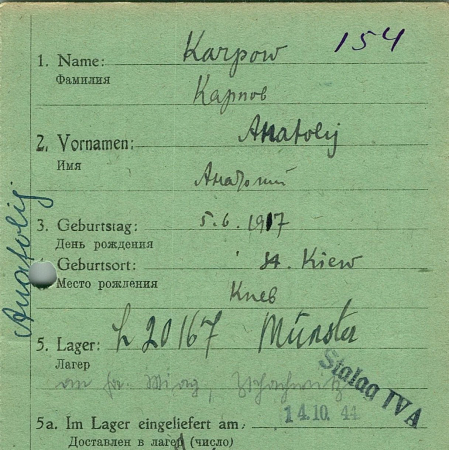 154
1. Name: Karpow
Фамилия
Карпов
2. Vornamen: Anatolij
Имя
Анатолий
3. Geburtstag: 5.6.1917
День рождения
Geburtsort: St. Kiew
Место рождения
Киев
Anatolij
5. Lager: 20167 Münster
Лагер
Stalag IV A
14.10.44
5a. Im Lager eingeliefert am:
Доставлен в лагер (число)